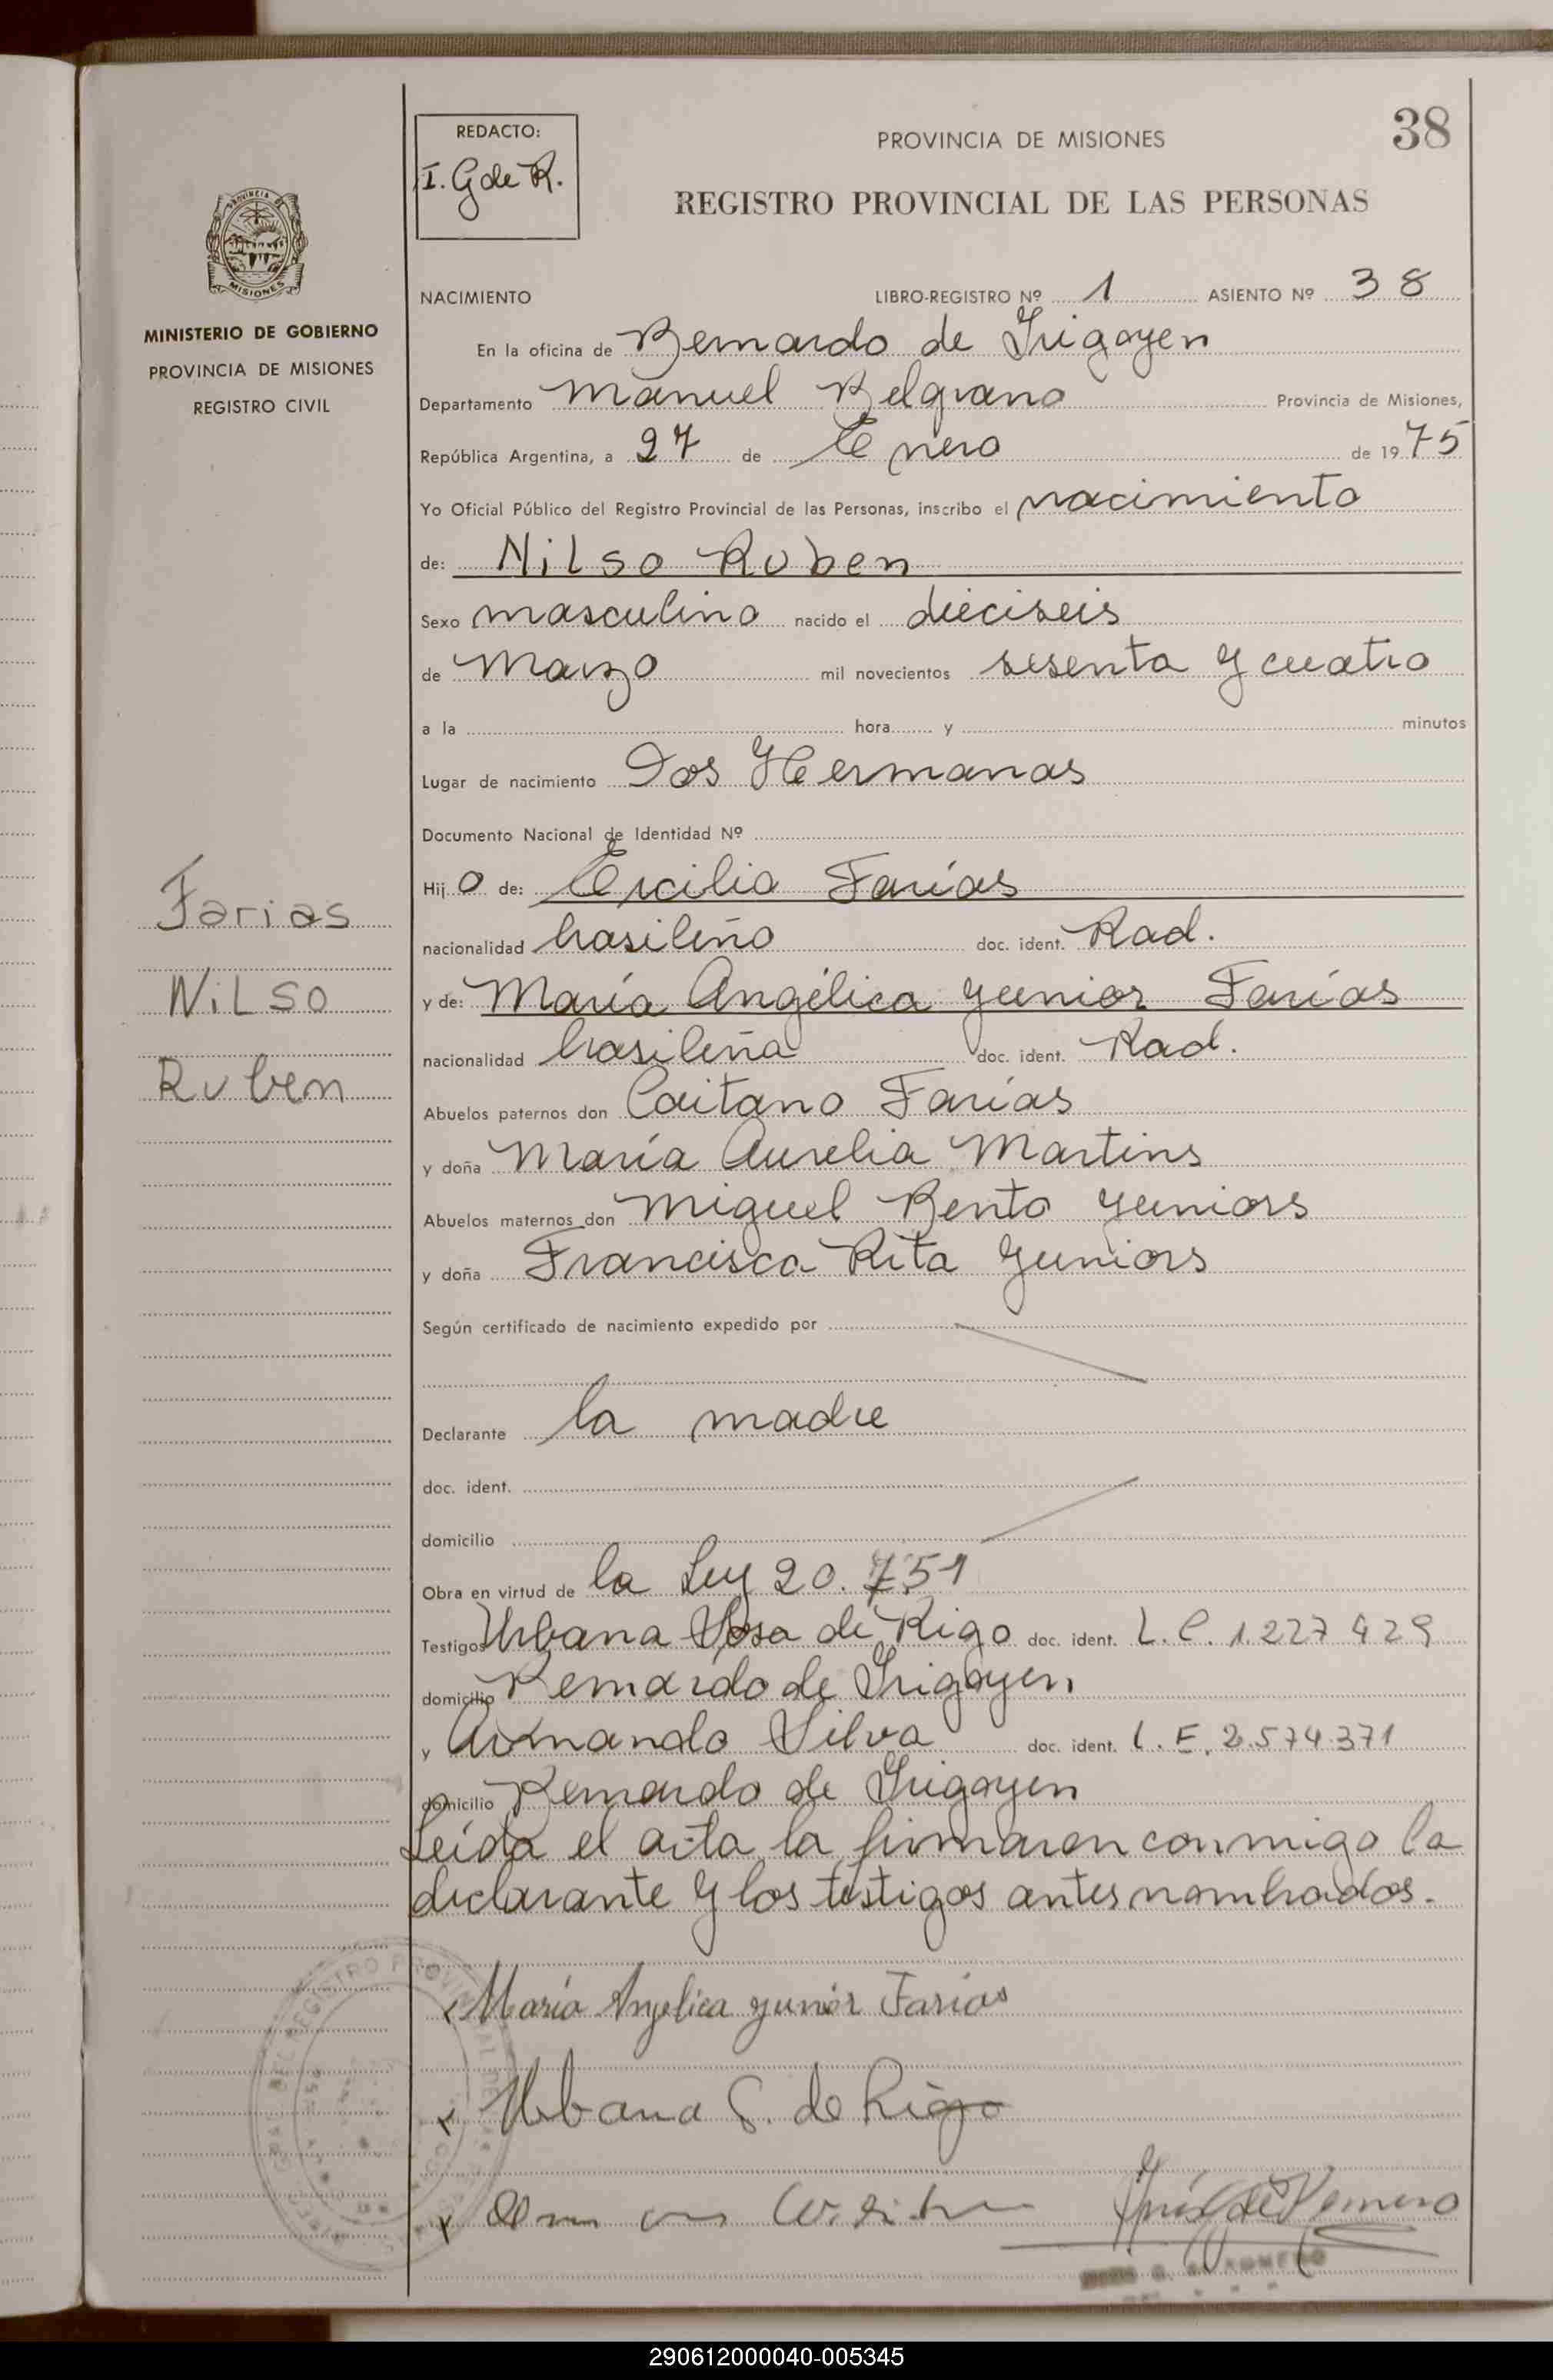 38
REDACTO:
I. G de R.
PROVINCIA DE MISIONES
REGISTRO PROVINCIAL DE LAS PERSONAS
MISIONES
MINISTERIO DE GOBIERNO
PROVINCIA DE MISIONES
REGISTRO CIVIL
NACIMIENTO LIBRO-REGISTRO Nº 1 ASIENTO Nº 38
En la oficina de Bernardo de Irigoyen
Departamento Manuel Belgrano Provincia de Misiones,
República Argentina, a 27 de Enero de 1975
Yo Oficial Público del Registro Provincial de las Personas, inscribo el nacimiento
de: Nilso Ruben
Sexo masculino nacido el dieciseis
de Marzo mil novecientos sesenta y cuatro
a la hora y minutos
Lugar de nacimiento Dos Hermanas
Documento Nacional de Identidad Nº
Hijo de: Ercilio Farías
nacionalidad brasileño doc. ident. Rad.
y de: María Angélica Yunior Farías
nacionalidad brasileña doc. ident. Rad.
Abuelos paternos don Caitano Farías
y doña María Aurelia Martins
Abuelos maternos don Miguel Bento Yuniors
y doña Francisca Rita Yuniors
Según certificado de nacimiento expedido por
Declarante la madre
doc. ident.
domicilio
Obra en virtud de la Ley 20.751
Testigos Urbana Sosa de Rigo doc. ident. L.C. 1.227429
domicilio Bernardo de Irigoyen
y Armando Silva doc. ident. L.E. 2.574.371
domicilio Bernardo de Irigoyen
Leída el acta la firmaron conmigo la
declarante y los testigos antes nombrados.
Farias
Nilso
Ruben
x María Angelica yunior Farias
x Urbana S. de Rigo
x
290612000040-005345